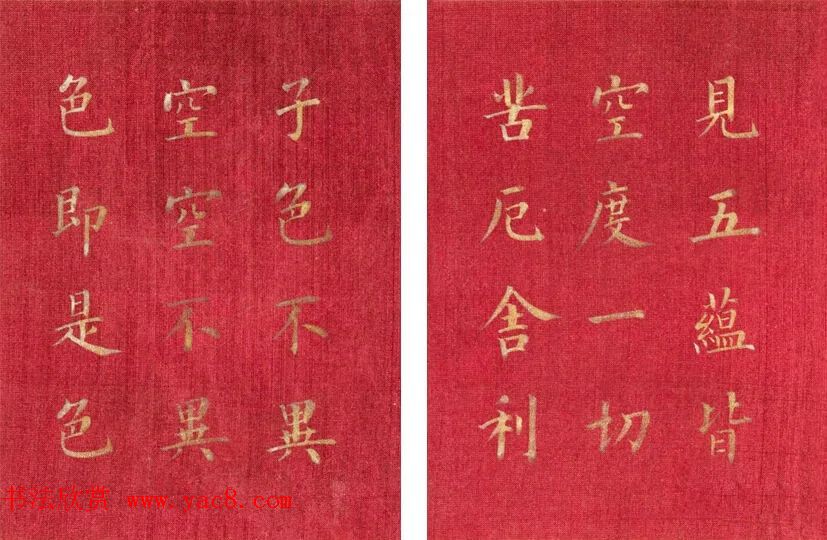 見五蘊皆
空度一切
苦厄舍利
子色不異
空空不異
色即是色
书法欣赏 www.yac8.com